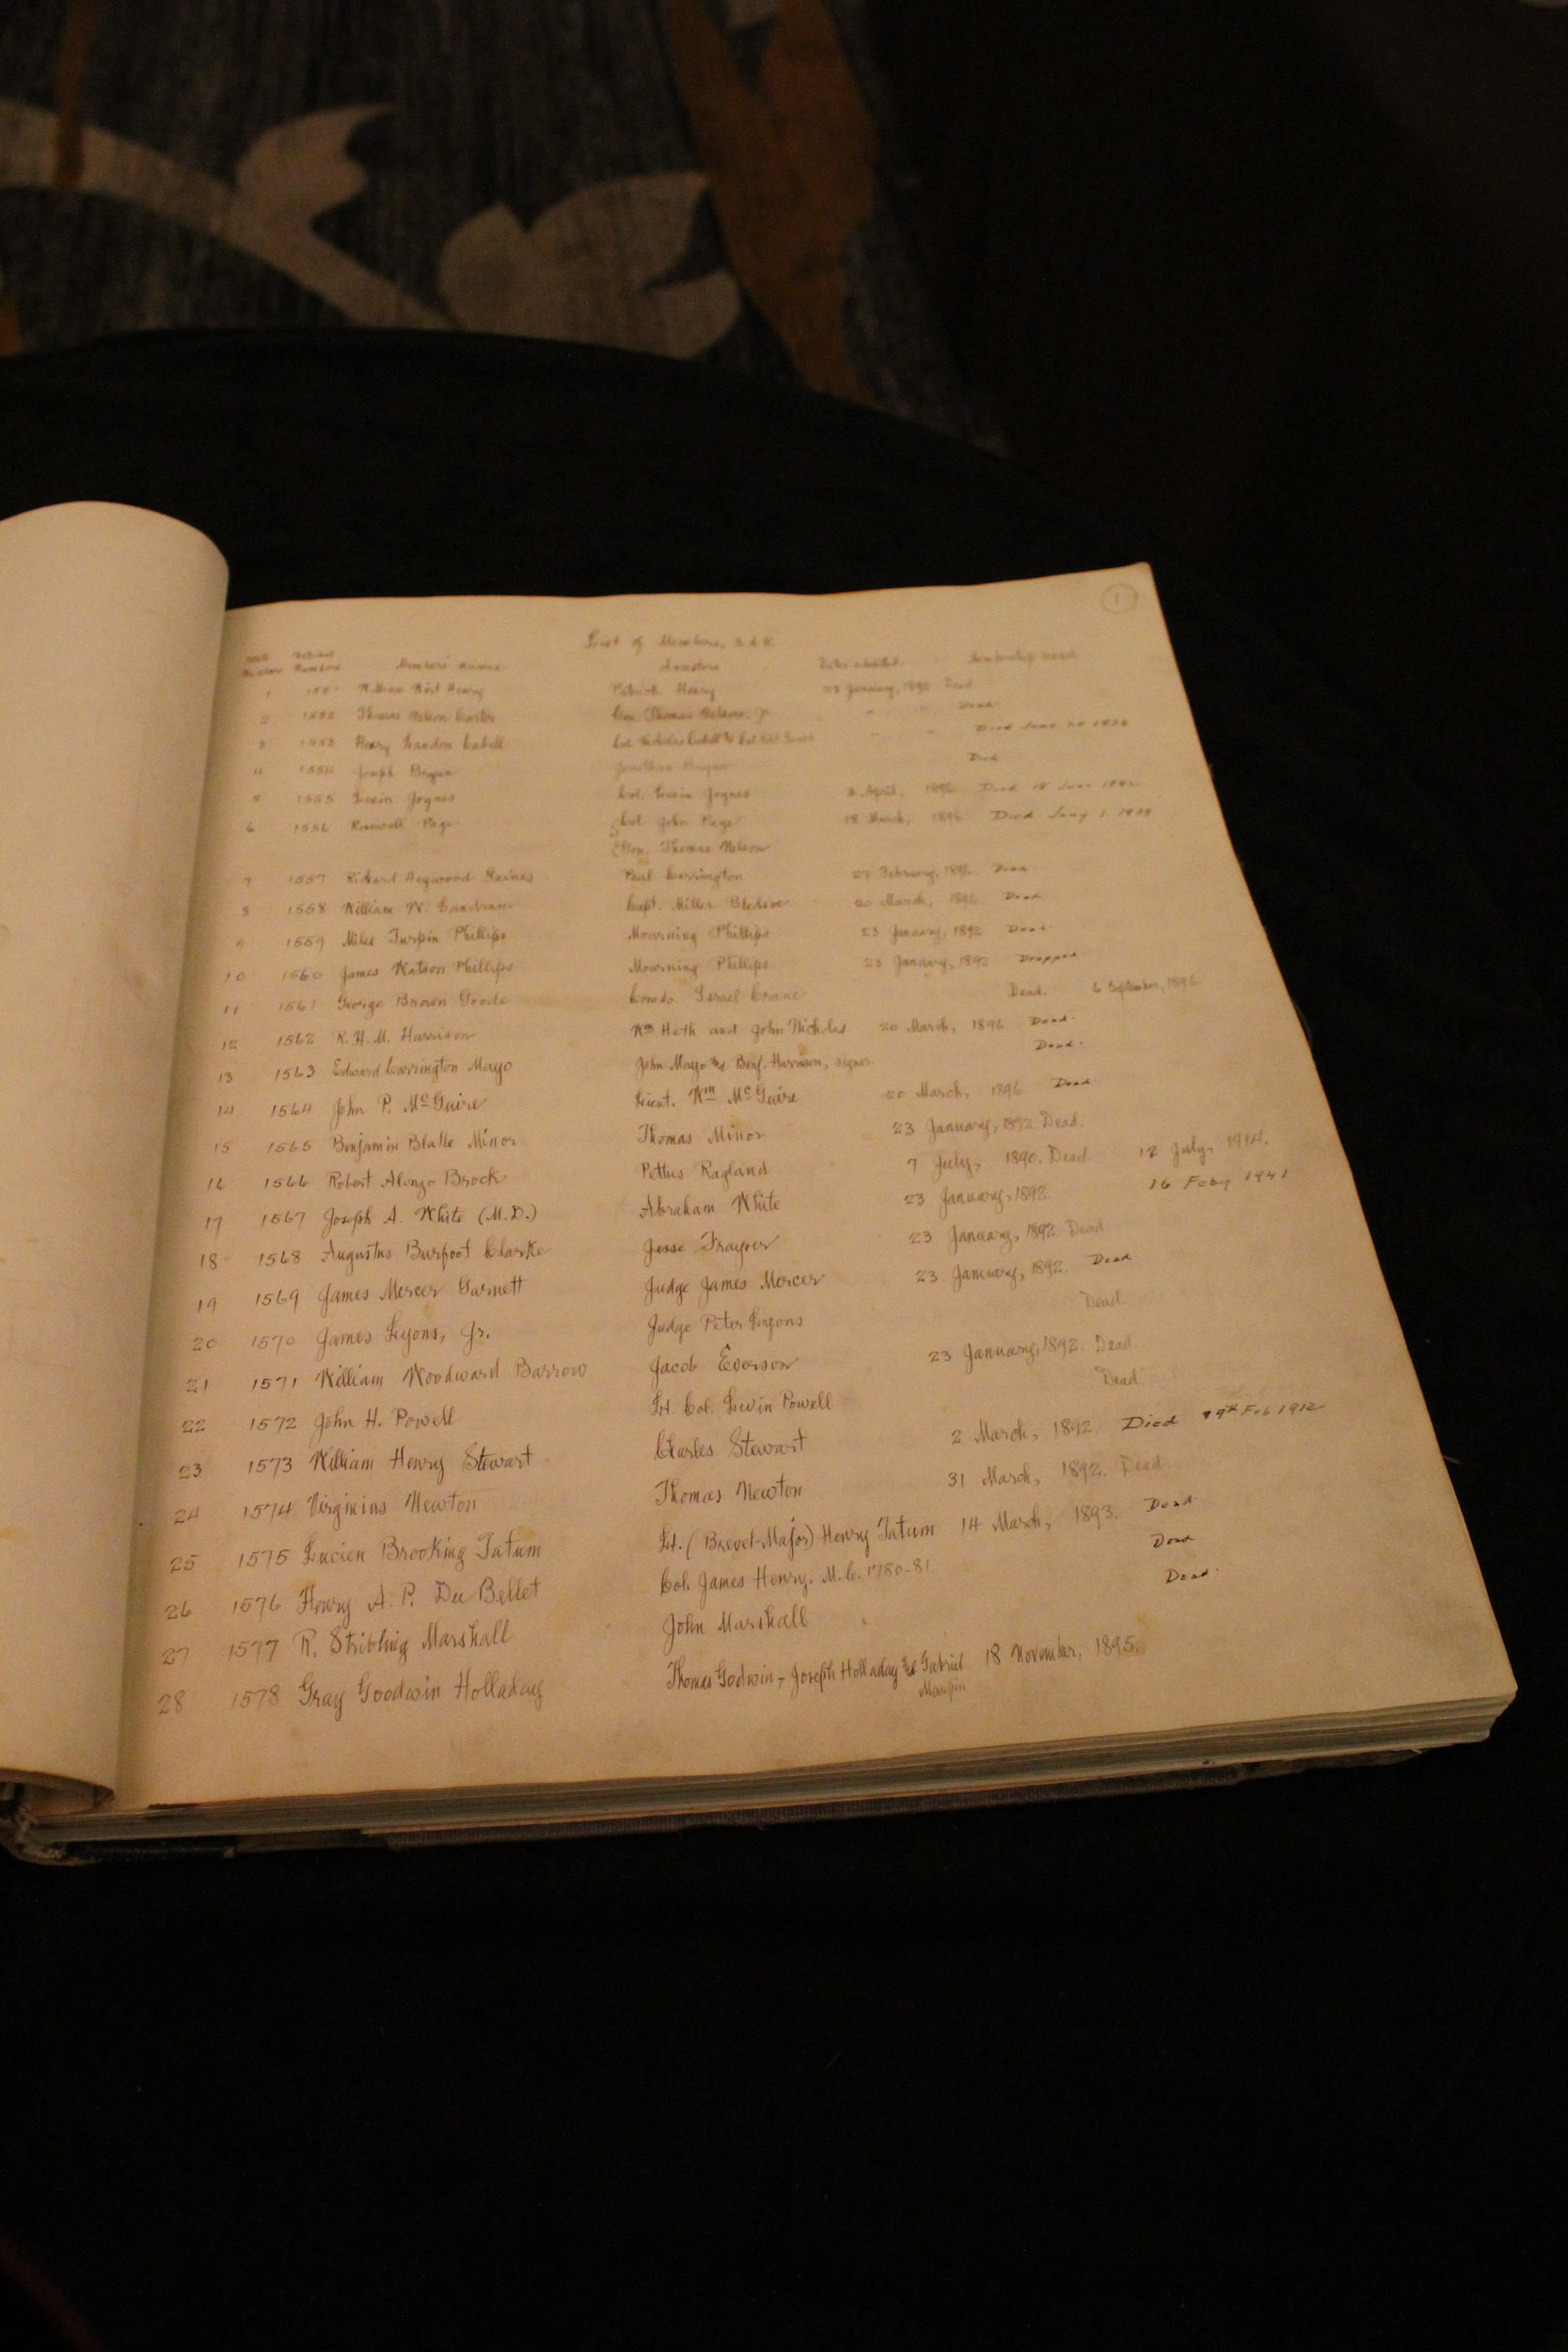 1
List of Members,
Number Number Members' Names Ancestors Dates admitted
1 1551 William Wirt Henry Patrick Henry 23 January, 1892 Dead
2 1552 Thomas Nelson Carter Gen. Thomas Nelson, Jr. " " Dead
3 1553 Henry Landon Cabell Col. Nicholas Cabell " " Died June
4 1554 Joseph Bryan Jonathan Bryan Dead
5 1555 Levin Joynes Col. Levin Joynes April, 1896 Died 18 June
6 1556 Rosewell Page Col. John Page 18 March, 1896 Died Jany 1. 1939
Gen. Thomas Nelson
7 1557 Richard Heywood Gaines Paul Carrington 27 February, 1896 Dead
8 1558 William W. Capt. Miller Bledsoe 20 March, 1896 Dead
9 1559 Miles Turpin Phillips Mourning Phillips 23 January, 1892 Dead
10 1560 James Watson Phillips Mourning Phillips 23 January, 1892 Dropped
11 1561 George Brown Goode Israel Crane Dead. 6 September, 1896
12 1562 R. H. M. Harrison Wm Heth and John Nicholas 20 March, 1896 Dead.
13 1563 Edward Carrington Mayo John Mayo & Benj. Harrison, signer. Dead.
14 1564 John P. McGuire Lieut. Wm McGuire 20 March, 1896 Dead
15 1565 Benjamin Blake Minor Thomas Minor 23 January, 1892. Dead.
16 1566 Robert Alonzo Brock Pettus Ragland 7 July, 1890. Dead. 12 July, 1914.
17 1567 Joseph A. White (M.D.) Abraham White 23 January, 1892. 16 Feby 1941
18 1568 Augustus Burfoot Clarke Jesse Frayser 23 January, 1892. Dead
19 1569 James Mercer Garnett Judge James Mercer 23 January, 1892. Dead
20 1570 James Lyons, Jr. Judge Peter Lyons Dead.
21 1571 William Woodward Barrow Jacob Everson 23 January, 1892. Dead.
22 1572 John H. Powell Lt. Col. Levin Powell Dead.
23 1573 William Henry Stewart Charles Stewart 2 March, 1892. Died 19th Feb 1912
24 1574 Virginius Newton Thomas Newton 31 March, 1892. Dead
25 1575 Lucien Brooking Tatum Lt. (Brevet-Major) Henry Tatum 14 March, 1893. Dead
26 1576 Henry A. P. Du Bellet Col. James Henry. M.C. 1780-81 Dead
27 1577 R. Stribling Marshall John Marshall Dead.
28 1578 Gray Goodwin Holladay Thomas Godwin, Joseph Holladay & Gabriel 18 November, 1895.
Maupin